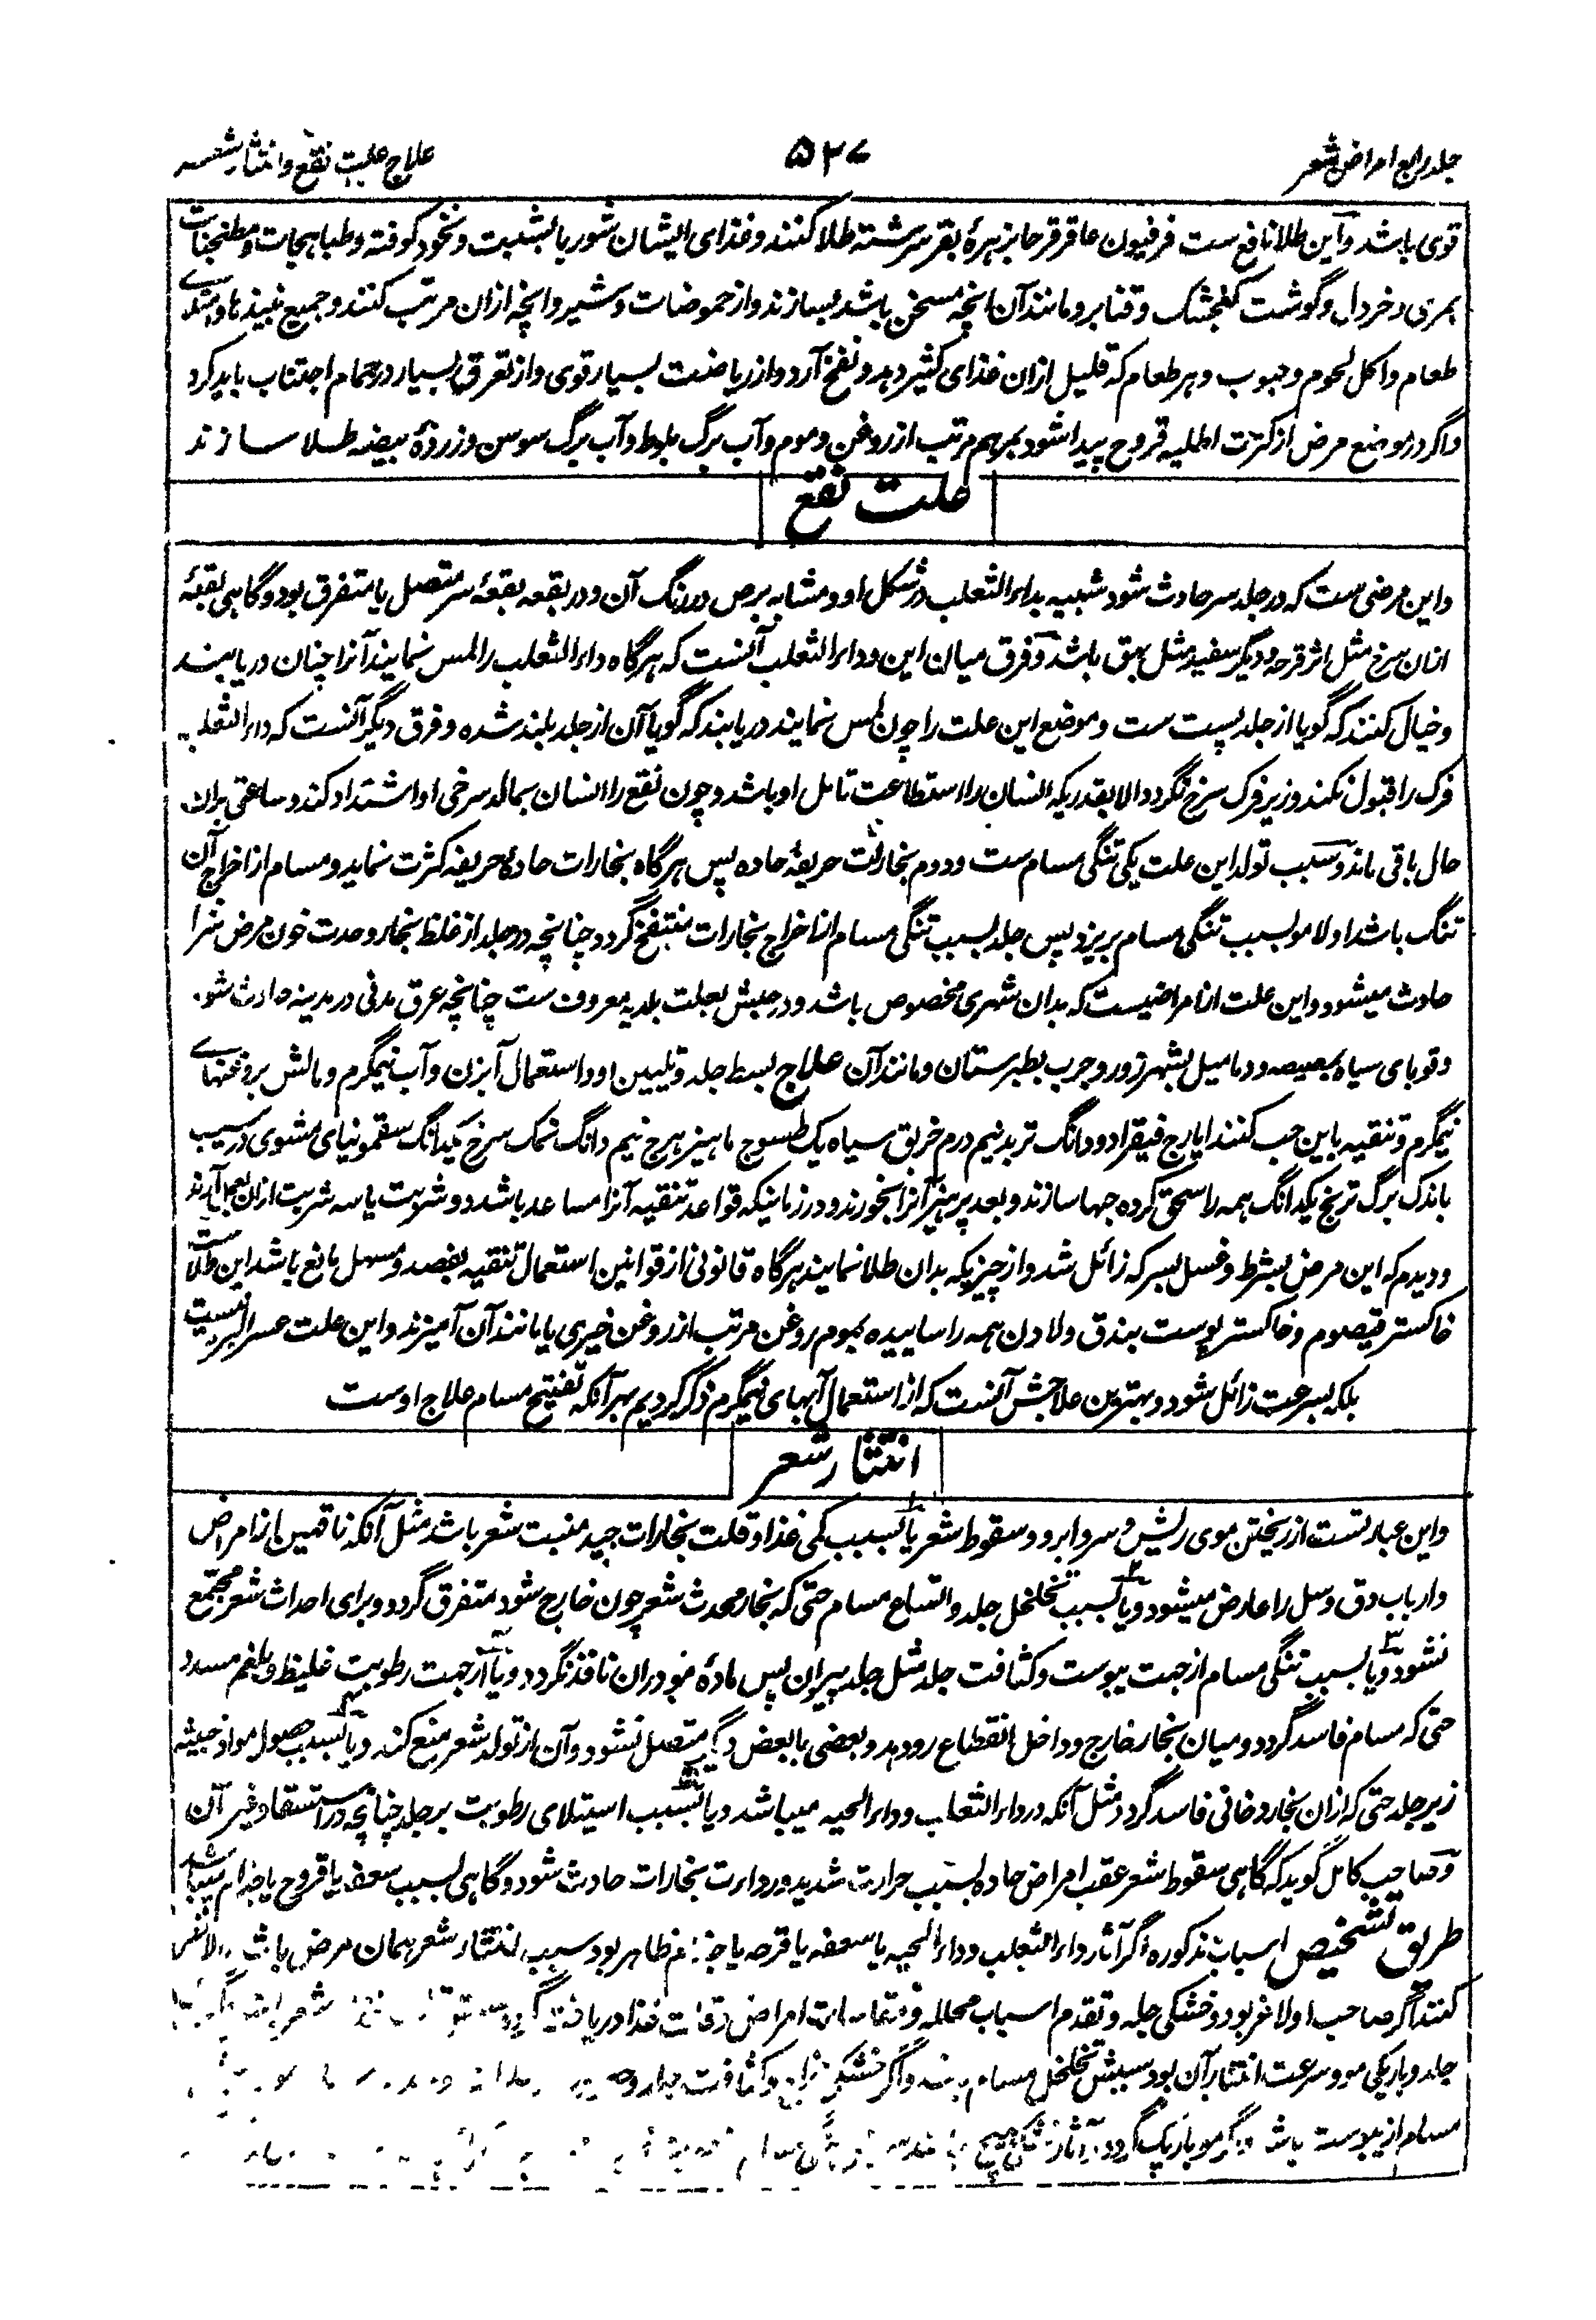 جلد رابع امراض شعر
۵۲۷
علاج علت نقع و انتثار شعر
قوی باشد و این طلا نافع ست فرفیون عاقرقرحا بزهرهٔ بقر سرشته طلا کنند و غذای ایشان شوربا بشبت و نخود کوفته و طباهجات و مطنجنات
بمری و خردل و گوشت کنجشک و قنابر و مانند آن انچه مسخن باشد بسازند و از حموضات و شیر و انچه ازان مرتب کنند و جمیع نبیذها و امتلای
طعام و اکل لحوم و حبوب و هر طعام که قلیل ازان غذای کثیر دهد و نفخ آرد و از ریاضت بسیار قوی و از تعرق بسیار در حمام اجتناب باید کرد
و اگر در موضع مرض از کثرت اطلیه قروح پیدا شود بمرهم مرتب از روغن و موم و آب برگ بلوط و آب برگ سوسن و زردهٔ بیضه طلا سازند
علت نقع
و این مرضی ست که در جلد سر حادث شود شبیه بداء الثعلب در شکل او و مشابه برص در رنگ آن و در بقعه بقعهٔ سر متصل یا متفرق بود و گاهی بقعهٔ
ازان سرخ مثل اثر قرحه و دیگر سفید مثل بهق باشد و فرق میان این و داء الثعلب آنست که هرگاه داء الثعلب را لمس نمایند آنرا چنان دریابند
و خیال کنند که گویا از جلد پست ست و موضع این علت را چون لمس نمایند دریابند که گویا آن از جلد بلند شده و فرق دیگر آنست که داء الثعلب
فرک را قبول نکند و زیر فرک سرخ نگردد الا بقدریکه انسان را استطاعت تامل او باشد و چون نقع را انسان بمالد سرخی او اشتداد کند و ساعتی بران
حال باقی ماند و سبب تولد این علت یکی تنگی مسام ست و دوم بخارات حریفهٔ حاده پس هرگاه بخارات حادهٔ حریفه کثرت نماید و مسام از اخراج آن
تنگ باشد اولا مو بسبب تنگی مسام بریزد پس جلد بسبب تنگی مسام از اخراج بخارات منتفخ گردد چنانچه در جلد از غلظ بخار و حدت خون مرض شرا
حادث میشود و این علت از امراضیست که بدان شهری مخصوص باشد و در حبش بعلت بلدیه معروف ست چنانچه عرق مدنی در مدینه حادث شود
و قوبای سیاه بمصیصه و دمامیل بشهر زور و جرب بطبرستان و مانند آن علاج بسط جلد و تلیین او و استعمال آبزن و آب نیمگرم و مالش بروغنهای
نیمگرم و تنقیه باین حب کنند ایارج فیقرا دو دانگ تربد نیم درم خربق سیاه یک طسوج ماهیزهرج نیم دانگ نمک سرخ یکدانگ سقمونیای مشوی در سیب
باندک برگ ترنج یکدانگ همه را سحق کرده حبها سازند و بعد پرهیز آنرا بخورند و در زمانیکه قواعد تنقیه آنرا مساعد باشد دو شربت یا سه شربت ازان بعمل آرند
و دیدم که این مرض بشرط و غسل بسرکه زائل شد و از چیزیکه بدان طلا نمایند هرگاه قانونی از قوانین استعمال تنقیه بفصد و مسهل مانع باشد این طلا ست
خاکستر قیصوم و خاکستر پوست بندق ولادن همه را ساییده بموم روغن مرتب از روغن خیری یا مانند آن آمیزند و این علت عسر البرء نیست
بلکه بسرعت زائل شود و بهترین علاجش آنست که از استعمال آبهای نیمگرم ذکر کردیم بهر آنکه تفتیح مسام علاج اوست
انتثار شعر
و این عبارتست از ریختن موی ریش و سر و ابرو و سقوط شعر یا بسبب کمی غذا و قلت بخارات جید منبت شعر باشد مثل آنکه ناقهین از امراض
و ارباب دق و سل را عارض میشود و یا بسبب تخلخل جلد و اتساع مسام حتی که بخار محدث شعر چون خارج شود متفرق گردد و برای احداث شعر مجتمع
نشود و یا بسبب تنگی مسام از جهت یبوست و کثافت جلد مثل جلد پیران پس مادهٔ مو دران نافذ نگردد و یا از جهت رطوبت غلیظ و بلغم مسدد
حتی که مسام فاسد گردد و میان بخار خارج و داخل انقطاع رو دهد و بعضی با بعض دیگر متصل نشود و آن از تولد شعر منع کند و یا بسبب حصول مواد خبیثه
زیر جلد حتی که ازان بخار دخانی فاسد گردد مثل آنکه در داء الثعلب و داء الحیه میباشد و یا بسبب استیلای رطوبت بر جلد چنانچه در استسقا و غیر آن
و صاحب کامل گوید که گاهی سقوط شعر عقب امراض حاده بسبب حرارت شدید و رداءت بخارات حادث شود و گاهی بسبب سعفه یا قروح یا جذام میباشد
طریق تشخیص اسباب مذکوره اگر آثار داء الثعلب و داء الحیه یا سعفه یا قرحه یا جذام ظاهر بود سبب انتثار شعر همان مرض باشد والا نظر
کنند اگر صاحب او لاغر بود و خشکی جلد و تقدم اسباب محلله و امراض و قلت غذا دریافت شعر
جلد و باریکی مو و سرعت انتثار آن بود سببش تخلخل مسام و اگر خشکی مزاج و کثافت جلد
مسام از یبوست باشد و اگر مو باریک گردد